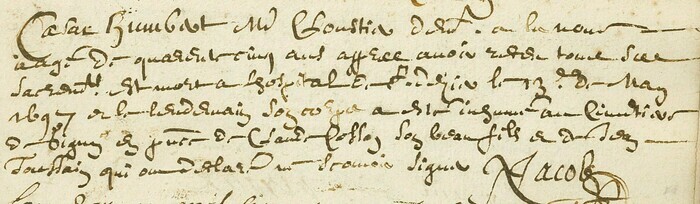 Cæsar Humbert Mre 
aagé de quarente cinq ans apprez avoir receu tous ses
sacremts. est mort a lhospital de St. le 13e. de May
1697 et le lendemain son corps a esté inhumé au Cimetiere
de en pnce de Claude Cosson son beau fils et de Jean
Toussain qui ont declaré ne scavoir signer Jacob